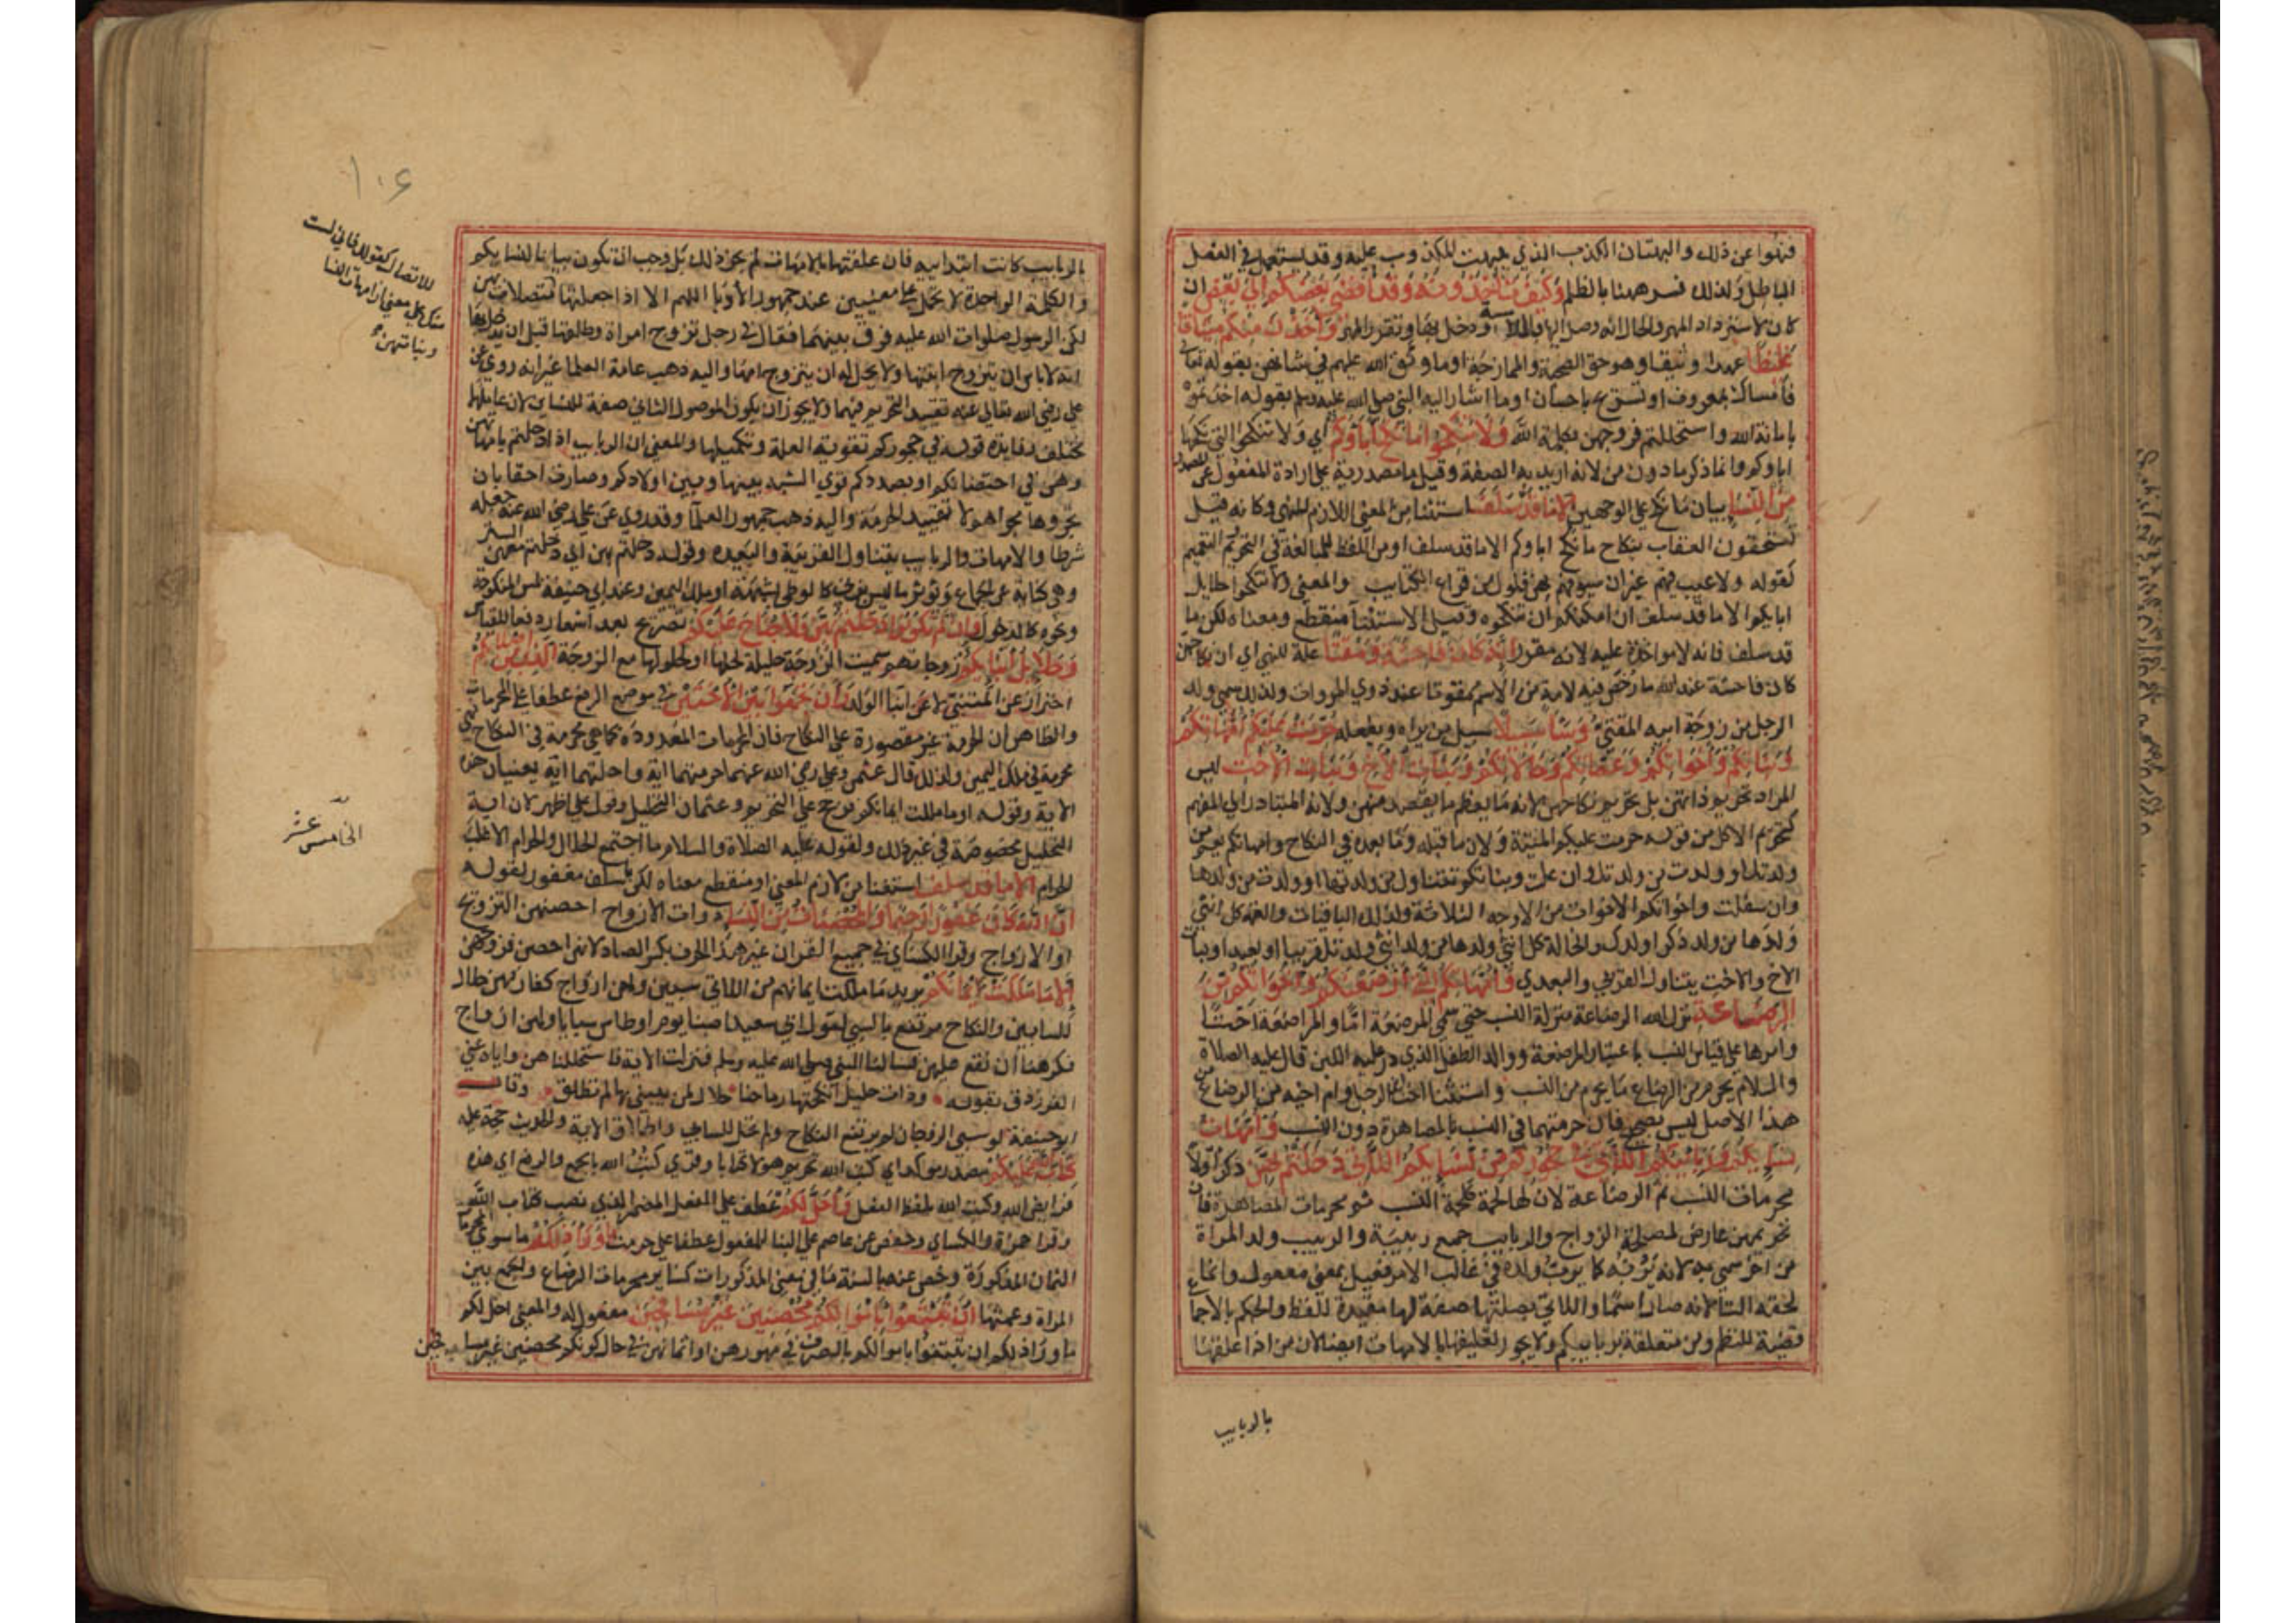 فنهوا عن ذلك والبهتان الكذب الذي يبهت المكذوب عليه وقد يستعمل في الفعل
الباطل ولذلك فسر ههنا بالظلم وَكَيْفَ تَأْخُذُونَهُ وَقَدْ أَفْضَى بَعْضُكُمْ إِلَى بَعْضٍ ان
كان لاسترداد المهر والحال انه وصل اليها بالملامسة ودخل بها وتقرر المهر وَأَخَذْنَ مِنْكُمْ مِيثَاقًا
غَلِيظًا عهدا وثيقا وهو حق الصحبة والممازجة او ما وثق الله عليهم في شانهن بقوله تعالى
فامساك بمعروف او تسريح باحسان او ما اشار اليه النبي صلى الله عليه وسلم بقوله اخذتموهن
بامانة الله واستحللتم فروجهن بكلمة الله وَلَا تَنْكِحُوا مَا نَكَحَ آبَاؤُكُمْ اي ولا تنكحوا التي نكحها
اباوكم وانما ذكر ما دون من لانه اريد به الصفة وقيل ما مصدرية على ارادة المفعول من المصدر
مِنَ النِّسَاءِ بيان ما نكح على الوجهين إِلَّا مَا قَدْ سَلَفَ استثنا من المعنى اللازم للنهي وكانه قيل
تستحقون العقاب بنكاح ما نكح اباوكم الا ما قد سلف او من اللفظ للمبالغة في التحريم والتعميم
كقوله ولا عيب فيهم غير ان سيوفهم بهن فلول من قراع الكتايب والمعنى ولا تنكحوا حلايل
ابايكم الا ما قد سلف ان امكنكم ان تنكحوه وقيل الاستثنا منقطع ومعناه لكن ما
قد سلف فانه لا مواخذة عليه لانه مقرر إِنَّهُ كَانَ فَاحِشَةً وَمَقْتًا علة للنهي اي ان نكاحهن
كان فاحشة عند الله ما رخص فيه لامة من الامم ممقوتا عند ذوي المروات ولذلك سمي ولد
الرجل من زوجة ابيه المقتي وَسَاءَ سَبِيلًا سبيل من يراه ويفعله حُرِّمَتْ عَلَيْكُمْ أُمَّهَاتُكُمْ
وَبَنَاتُكُمْ وَأَخَوَاتُكُمْ وَعَمَّاتُكُمْ وَخَالَاتُكُمْ وَبَنَاتُ الْأَخِ وَبَنَاتُ الْأُخْتِ ليس
المراد تحريم ذاتهن بل تحريم نكاحهن لانه معظم ما يقصد منهن ولانه المتبادر الى الفهم
كتحريم الاكل من قوله حرمت عليكم الميتة ولان ما قبله وما بعده في النكاح وامهاتكم يعم من
ولدتك او ولدت من ولدتك وان علت وبناتكم تتناول من ولدتها او ولدت من ولدها
وان سفلت واخواتكم الاخوات من الاوجه الثلاثة وكذلك الباقيات والعمة كل انثى
ولدها من ولد ذكرا ولدك والخالة كل انثى ولدها من ولد انثى ولدتك قريبا او بعيدا وبنات
الاخ والاخت يتناول القربى والبعدى وَأُمَّهَاتُكُمُ اللَّاتِي أَرْضَعْنَكُمْ وَأَخَوَاتُكُمْ مِنَ
الرَّضَاعَةِ نزل الله الرضاعة منزلة النسب حتى سمى المرضعة اما والمراضعة اختا
وامرها على قياس النسب باعتبار المرضعة ووالد الطفل الذي در عليه اللبن قال عليه الصلاة
والسلام يحرم من الرضاع ما يحرم من النسب واستثنا اخت ابن الرجل وام اخيه من الرضاع من
هذا الاصل ليس بصحيح فان حرمتهما في النسب بالمصاهرة دون النسب وَأُمَّهَاتُ
نِسَائِكُمْ وَرَبَائِبُكُمُ اللَّاتِي فِي حُجُورِكُمْ مِنْ نِسَائِكُمُ اللَّاتِي دَخَلْتُمْ بِهِنَّ ذكر اولا
محرمات النسب ثم الرضاعة لان لها لحمة كلحمة النسب ثم محرمات المصاهرة فان
تحريمهن عارض لمصلحة الزواج والربايب جمع ربيبة والربيب ولد المراة
من اخر سمي به لانه يربه كما يرب ولده في غالب الامر فعيل بمعنى مفعول وانما
لحقه التا لانه صار اسما واللاتي بصلتها صفة لها مقيدة للفظ والحكم بالاجماع
قضية للنظم ومن متعلقة بربايبكم ولا يجوز تعليقها بالامهات ايضا لان من اذا علقتها
بالربايب
١٠٤
بالربايب كانت ابتدايية فان علقتها بالامهات لم يجز ذلك بل وجب ان تكون بيانا لنسايكم
والكلمة الواحدة لا تحمل على معنيين عند جمهور الادبا اللهم الا اذا جعلتها للاتصال
لكن الرسول صلوات الله عليه فرق بينهما فقال في رجل تزوج امراة وطلقها قبل ان يدخل بها
انه لا باس ان يتزوج ابنتها ولا يحل له ان يتزوج امها واليه ذهب عامة العلما غير انه روي عن
علي رضي الله تعالى عنه تقييد التحريم فيهما ولا يجوز ان يكون الموصول الثاني صفة للنساين لان عاملهما
مختلف وفايدة قوله في حجوركم تقوية العلة وتكميلها والمعنى ان الربايب اذا دخلتم بامهاتهن
وهن في احتضانكم او بصدده قوي الشبه بينها وبين اولادكم وصارت احقا بان
تجروها مجراهم لا تقييد الحرمة واليه ذهب جمهور العلما وقد روي عن علي رضي الله عنه جعله
شرطا والامهات والربايب يتناول القريبة والبعيده وقوله دخلتم بهن اي دخلتم معهن الستر
وهي كناية عن الجماع ويوثر ما ليس بزنا كالوطي بشبهة او ملك اليمين وعند ابي حنيفة لمس المنكوحة
ونحوه كالدخول فَإِنْ لَمْ تَكُونُوا دَخَلْتُمْ بِهِنَّ فَلَا جُنَاحَ عَلَيْكُمْ تصريح بعد اشعار دفعا للقياس
وَحَلَائِلُ أَبْنَائِكُمُ زوجاتهم سميت الزوجة حليلة لحلها او لحلولها مع الزوج الَّذِينَ مِنْ أَصْلَابِكُمْ
احتراز عن المتبني لا عن ابنا الولد وَأَنْ تَجْمَعُوا بَيْنَ الْأُخْتَيْنِ في موضع الرفع عطفا على المحرمات
والظاهر ان الحرمة غير مقصورة على النكاح فان المحرمات المعدودة كما هي محرمة في النكاح فهي
محرمة في ملك اليمين ولذلك قال عثمن وعلي رضي الله عنهما حرمتهما اية واحلتهما اية يعنيان هذه
الاية وقوله او ما ملكت ايمانكم فرجح علي التحريم وعثمان التحليل وقول علي اظهر لان اية
التحليل مخصوصة في غير ذلك ولقوله عليه الصلاة والسلام ما اجتمع الحلال والحرام الا غلب
الحرام إِلَّا مَا قَدْ سَلَفَ استثنا من لازم المعنى او منقطع معناه لكن ما سلف مغفور لقوله
إِنَّ اللَّهَ كَانَ غَفُورًا رَحِيمًا وَالْمُحْصَنَاتُ مِنَ النِّسَاءِ ذوات الازواج احصنهن التزويج
او الازواج وقرا الكساي في جميع القران غير هذا الحرف بكسر الصاد لانهن احصن فروجهن
إِلَّا مَا مَلَكَتْ أَيْمَانُكُمْ يريد ما ملكت ايمانهم من اللاتي سبين ولهن ازواج كفار فهن حلال
للسابين والنكاح مرتفع بالسبي لقول ابي سعيد اصبنا يوم اوطاس سبايا ولهن ازواج
فكرهنا ان نقع عليهن فسالنا النبي صلى الله عليه وسلم فنزلت الاية فاستحللناهن واياه عني
الفرزدق بقوله وذات حليل انكحتها رماحنا حلال لمن يبني بها لم تطلق وقال
ابو حنيفة لو سبى الزوجان لم يرتفع النكاح ولم تحل للسابي واطلاق الاية والحديث حجة عليه
كِتَابَ اللَّهِ عَلَيْكُمْ مصدر موكد اي كتب الله تحريم هولا كتابا وقري كتب الله بالجمع والرفع اي هذه
فرايض الله وكتب الله بلفظ الفعل وَأُحِلَّ لَكُمْ عطف على الفعل المضمر الذي نصب كتاب الله
وقرا حمزة والكساي وحفص عن عاصم على البنا للمفعول عطفا على حرمت مَا وَرَاءَ ذَلِكُمْ ما سوى
الثمان المذكورة وخص عنه بالسنة ما في معنى المذكورات كساير محرمات الرضاع والجمع بين
المراة وعمتها أَنْ تَبْتَغُوا بِأَمْوَالِكُمْ مُحْصِنِينَ غَيْرَ مُسَافِحِينَ مفعول له والمعنى احل لكم
ما وراذلكم ان تبتغوا باموالكم بالصرف في مهورهن او اثمانهن في حال كونكم محصنين غير مسافحين
للاتصال كقوله فاني لست
منك على معنى ان امهات النسا
وبناتهن
الخامس عشر